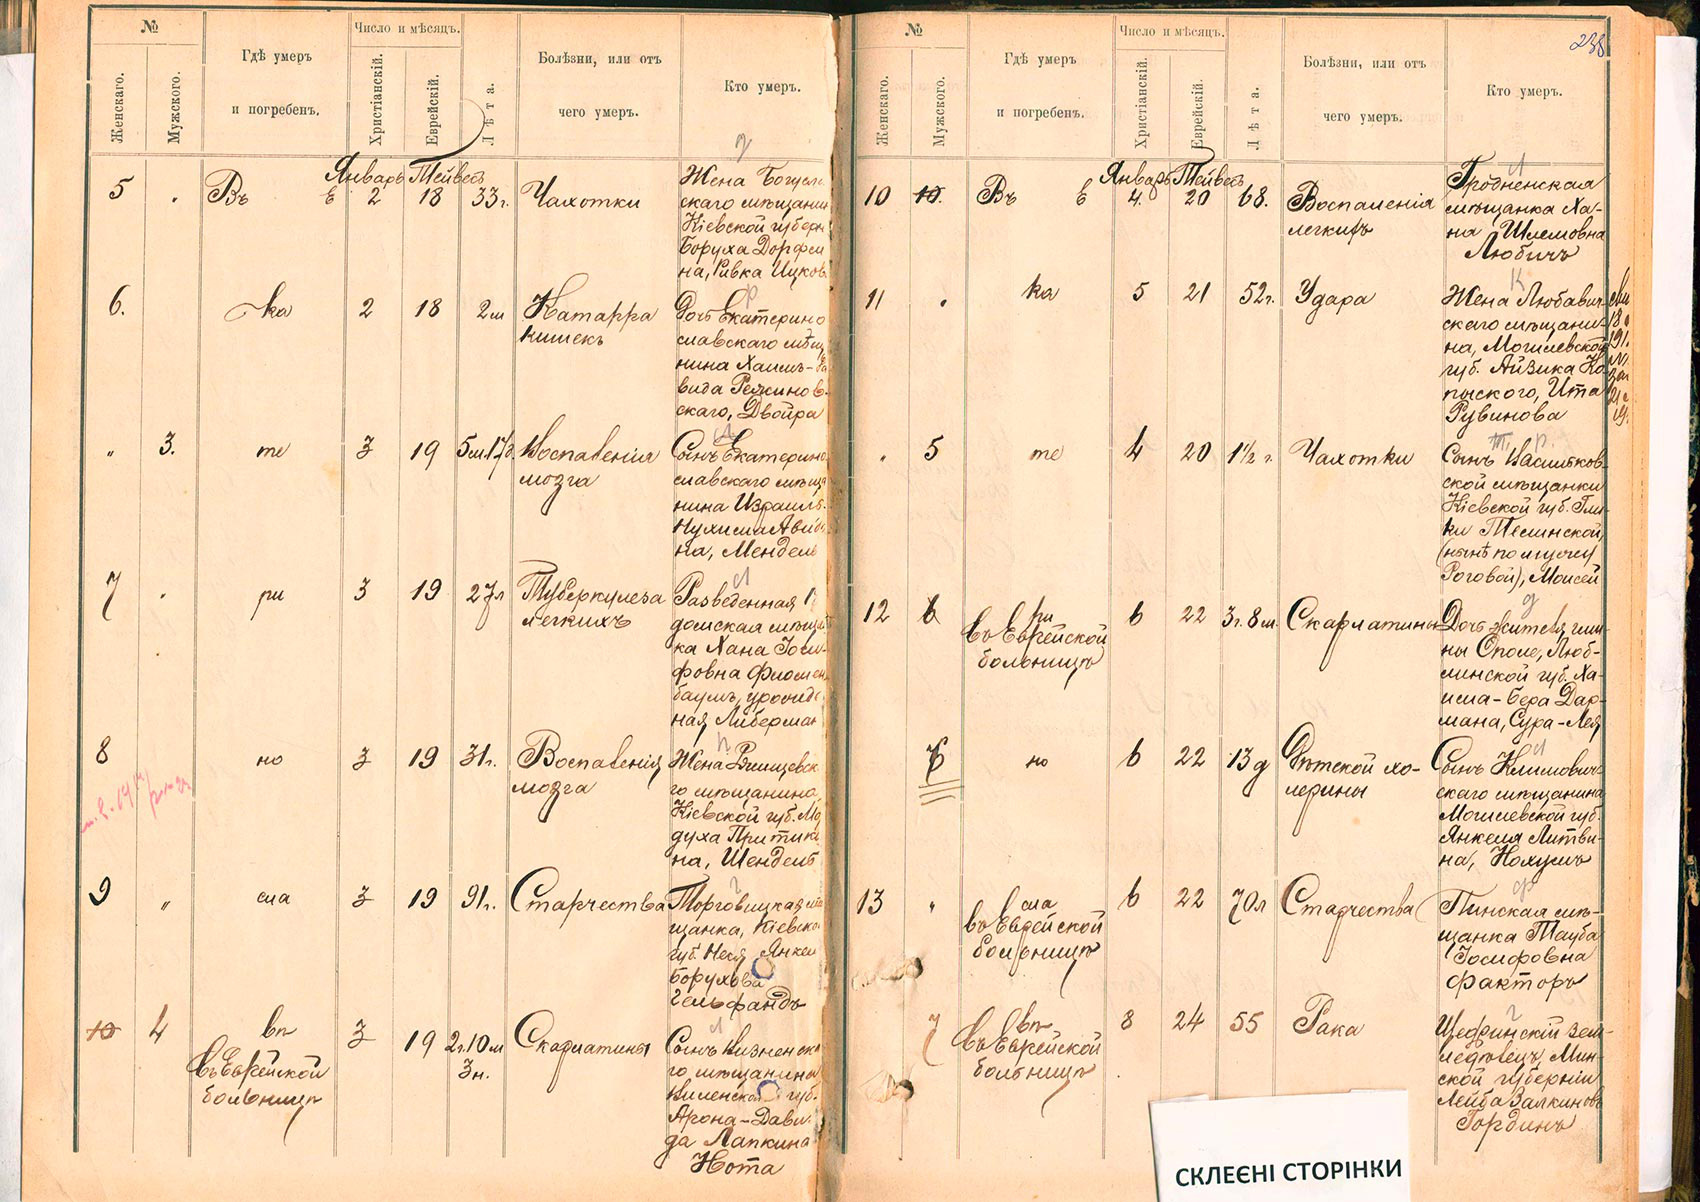 №
Число и мѣсяцъ.
Гдѣ умеръ
и погребенъ.
Болѣзни, или отъ
чего умеръ.
Кто умеръ.
Женскаго.
Мужского.
Христіанскій.
Еврейскій.
Лѣта.
Январь Тейвесъ
5
Въ Е
2
18
33 г.
Чахотки
Жена Богусл
скаго мѣщанин
Кіевской губерн
Боруха Дорфма
на, Ривка Ицков
6.
ка
2
18
2 м
Катарра
кишекъ
Дочь Екатерино
славскаго мѣщ
нина Хаимъ-Да
вида
скаго, Двойра
"
3.
те
3
19
5 м. 17 д.
Воспаленія
мозга
Сынъ Екатерино
славскаго мѣща
нина Израиль-
на, Мендель
7
ри
3
19
27 л
Туберкулеза
легкихъ
Разведенная
домская мѣщан
ка Хана Іоси-
фовна Флюмен
баумъ, урожде
ная Либерман
8
но
3
19
31 г.
Воспаленія
мозга
Жена Ржищевск
го мѣщанина
Кіевской губ. Мо
духа Притики
на, Шендель
9
"
сла
3
19
91 г.
Старчества
Торговицкая мѣ
щанка, Кіевско
губ. Неся Янкел
Борухова
Гельфандъ
10
4
вп
въ Еврейской
больницѣ
3
19
2 г. 10 м
3 н.
Скарлатины
Сынъ
го мѣщанина
Виленской губ.
Арона-Дави
да Лапкина
Нота
№
Число и мѣсяцъ.
Гдѣ умеръ
и погребенъ.
Болѣзни, или отъ
чего умеръ.
Кто умеръ.
Женскаго.
Мужского.
Христіанскій.
Еврейскій.
Лѣта.
238
Январь Тейвесъ
10
10.
Въ Е
4.
20
68.
Воспаленія
легкихъ
Гродненская
мѣщанка Ха-
на Шлемовна
Любичъ
11
ка
5
21
52 г.
Удара
Жена Любавич-
скаго мѣщани-
на, Могилевской
губ. Айзика Ко-
пыскаго, Ита
Рувинова
"
5
те
4
20
1½ г.
Чахотки
Сынъ Васильков-
ской мѣщанки
Кіевской губ. Гли-
ки Теплинской,
(нынѣ по мужу
Роговой), Моисей
12
6
ри
въ Еврейской
больницѣ
6
22
3 г. 8 м.
Скарлатины
Дочь жителя гми-
ны Ополе, Люб-
линской губ. Ха-
има-Бера Дар-
мана, Сура-Лея
6
но
6
22
13 д
Дѣтской хо-
лерины
Сынъ Климович-
скаго мѣщанина
Могилевской губ.
Янкеля Литви-
на, Нохумъ
13
"
сла
въ Еврейской
больницѣ
6
22
70 л
Старчества
Пинская мѣ-
щанка Тауба
Іосифовна
Факторъ
7
вп
въ Еврейской
больницѣ
8
24
55
Рака
Щедринскій зем-
ледѣлецъ, Мин-
ской губерніи
Лейба Залкиновъ
Гординъ
СКЛЕЄНІ СТОРІНКИ